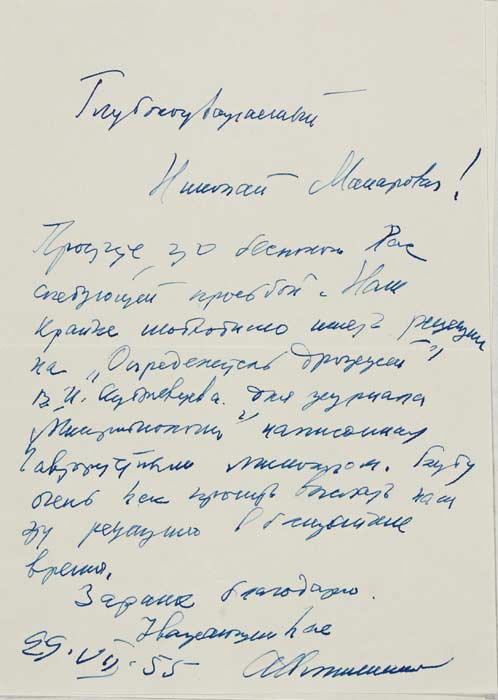 Глубокоуважаемый
Николай Макарович!
Простите, что беспокою Вас
следующей просьбой. Нам
крайне необходимо иметь рецензию
на „Определитель дрожжей"
В. И. Кудрявцева для журнала
„Микробиология" написанная
авторитетным микологом. Буду
очень Вас просить выслать нам
эту рецензию в ближайшее
время.
Заранее благодарю.
Уважающий Вас
29. VII. 55